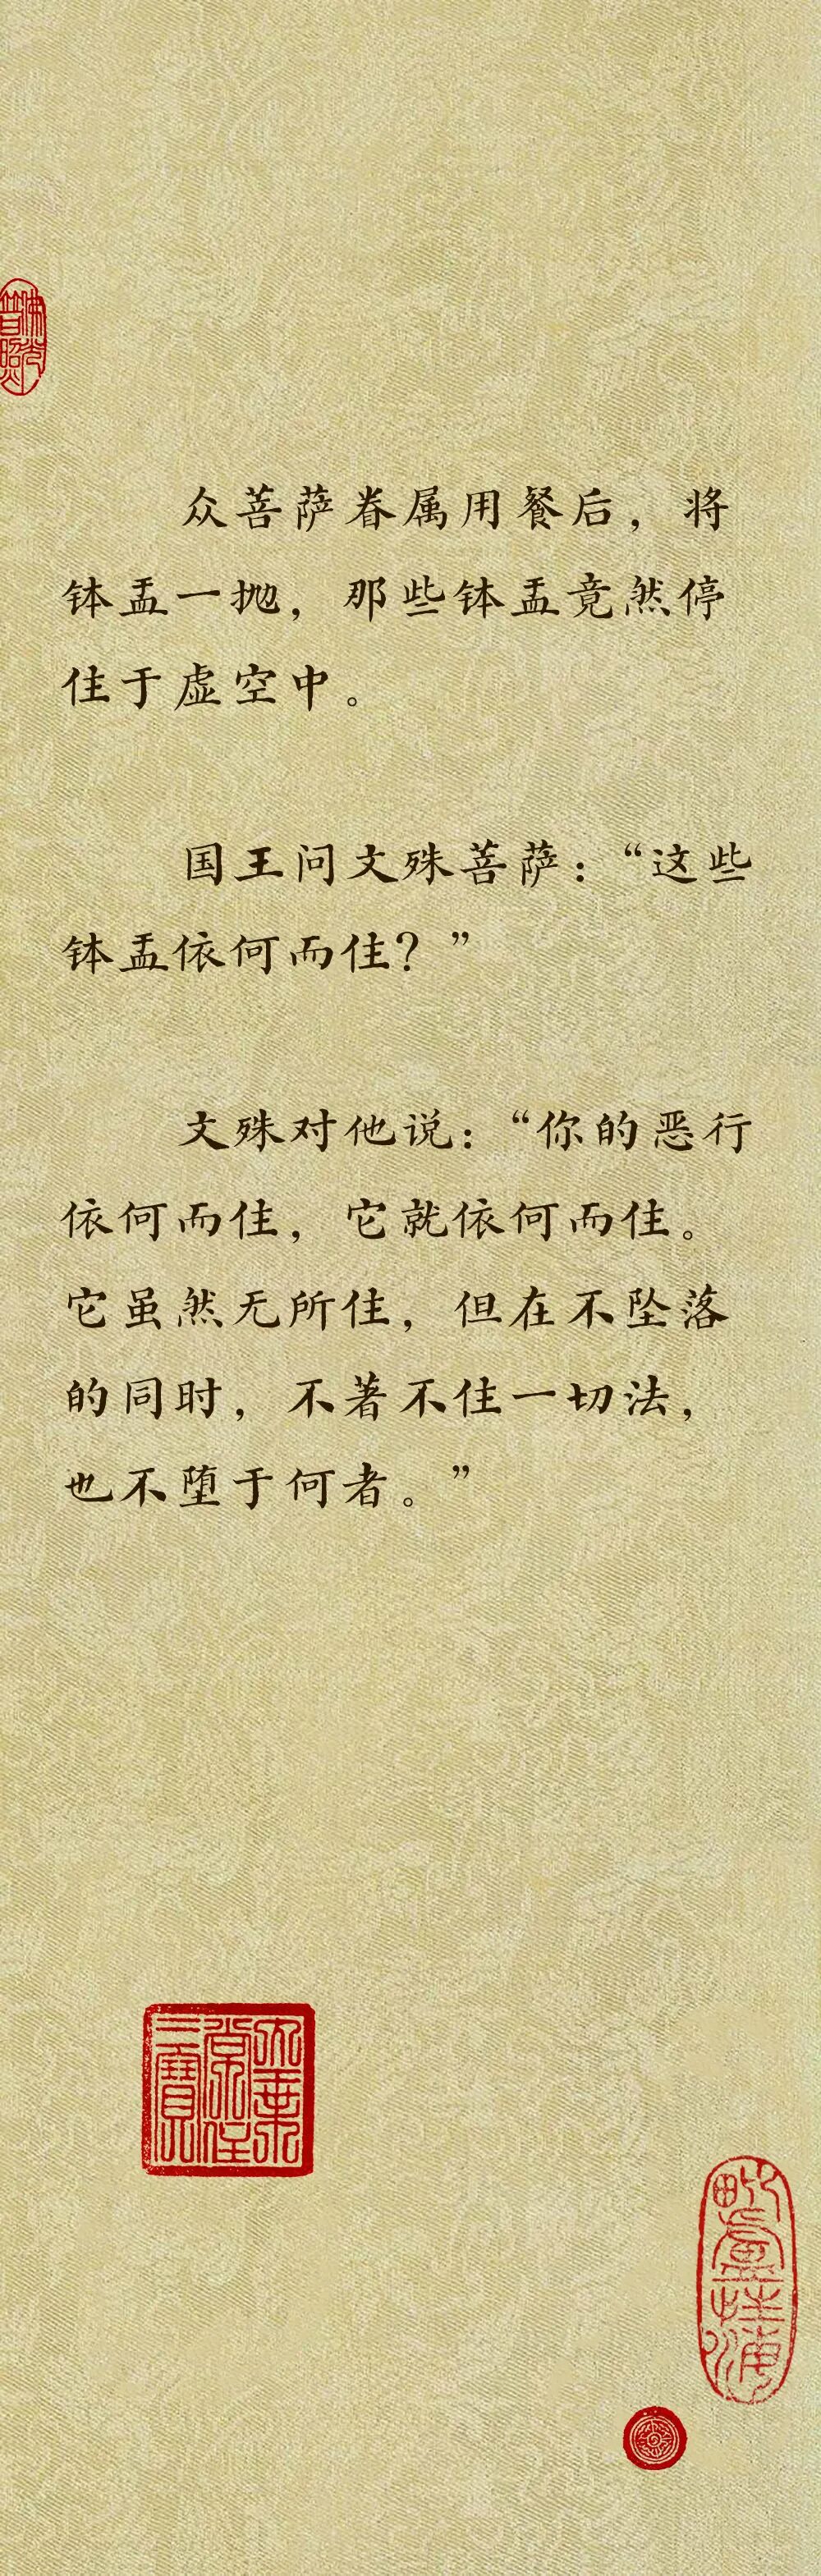 佛光
普照
众菩萨眷属用餐后，将
钵盂一抛，那些钵盂竟然停
住于虚空中。
国王问文殊菩萨：“这些
钵盂依何而住？”
文殊对他说：“你的恶行
依何而住，它就依何而住。
它虽然无所住，但在不坠落
的同时，不著不住一切法，
也不堕于何者。”
六乘
常住
三寶
毗盧性海